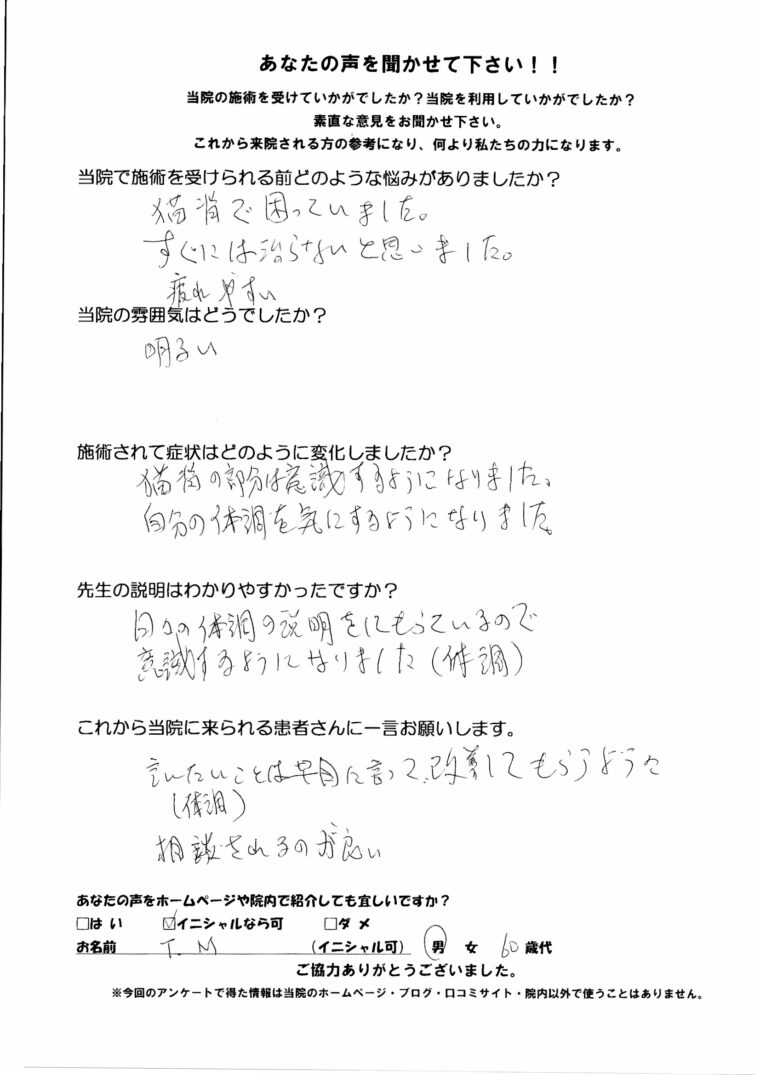 あなたの声を聞かせて下さい！！
当院の施術を受けていかがでしたか？当院を利用していかがでしたか？
素直な意見をお聞かせ下さい。
これから来院される方の参考になり、何より私たちの力になります。
当院で施術を受けられる前どのような悩みがありましたか？
猫背で困っていました。
すぐには治らないと思いました。
疲れやすい
当院の雰囲気はどうでしたか？
明るい
施術されて症状はどのように変化しましたか？
猫背の部分は意識するようになりました、
自分の体調を気にするようになりました。
先生の説明はわかりやすかったですか？
日々の体調の説明をにもらっているので
意識するようになりました（体調）
これから当院に来られる患者さんに一言お願いします。
言いたいことは早目に言って、改善してもらうように
（体調）
相談されるのが良い
あなたの声をホームページや院内で紹介しても宜しいですか？
□はい ☑イニシャルなら可 □ダメ
お名前 T. M （イニシャル可） 男 女 60歳代
ご協力ありがとうございました。
※今回のアンケートで得た情報は当院のホームページ・ブログ・口コミサイト・院内以外で使うことはありません。